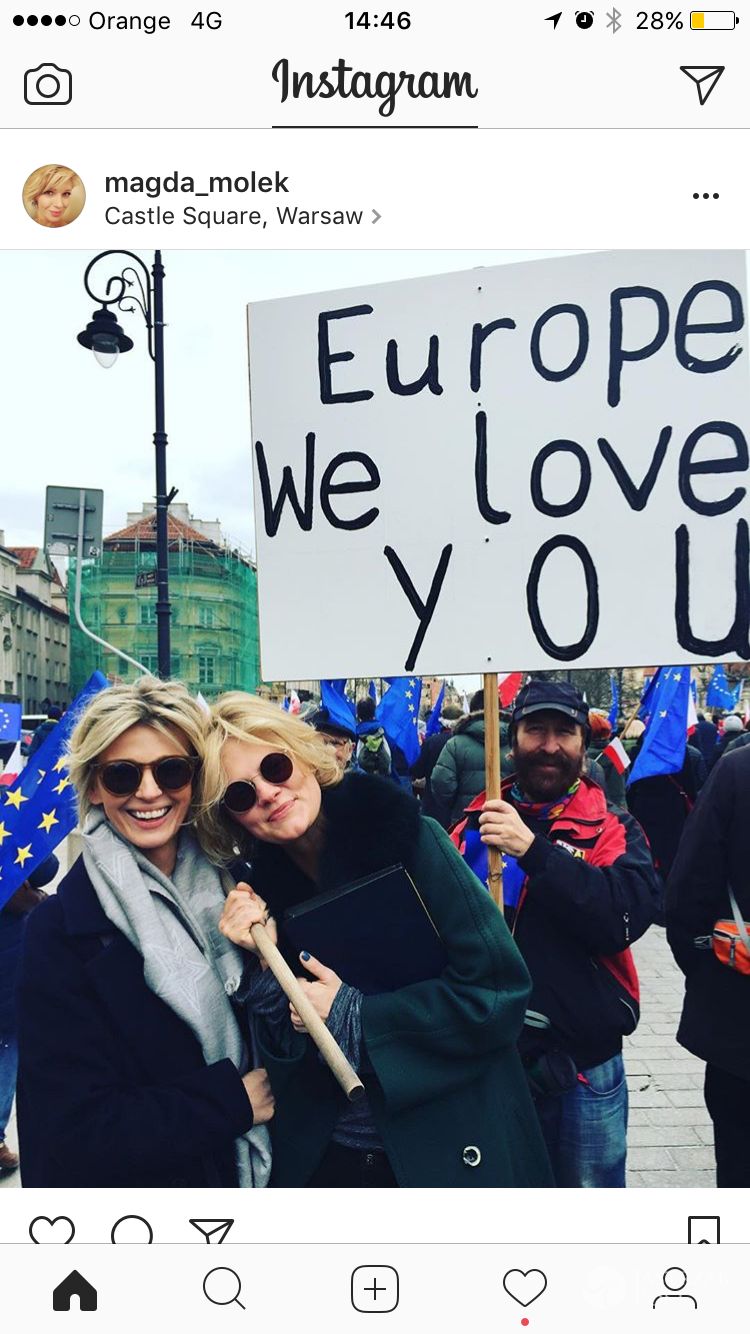 Orange 4G 14:46 28%
Instagram
magda_molek
Castle Square, Warsaw
Europe
We love
you